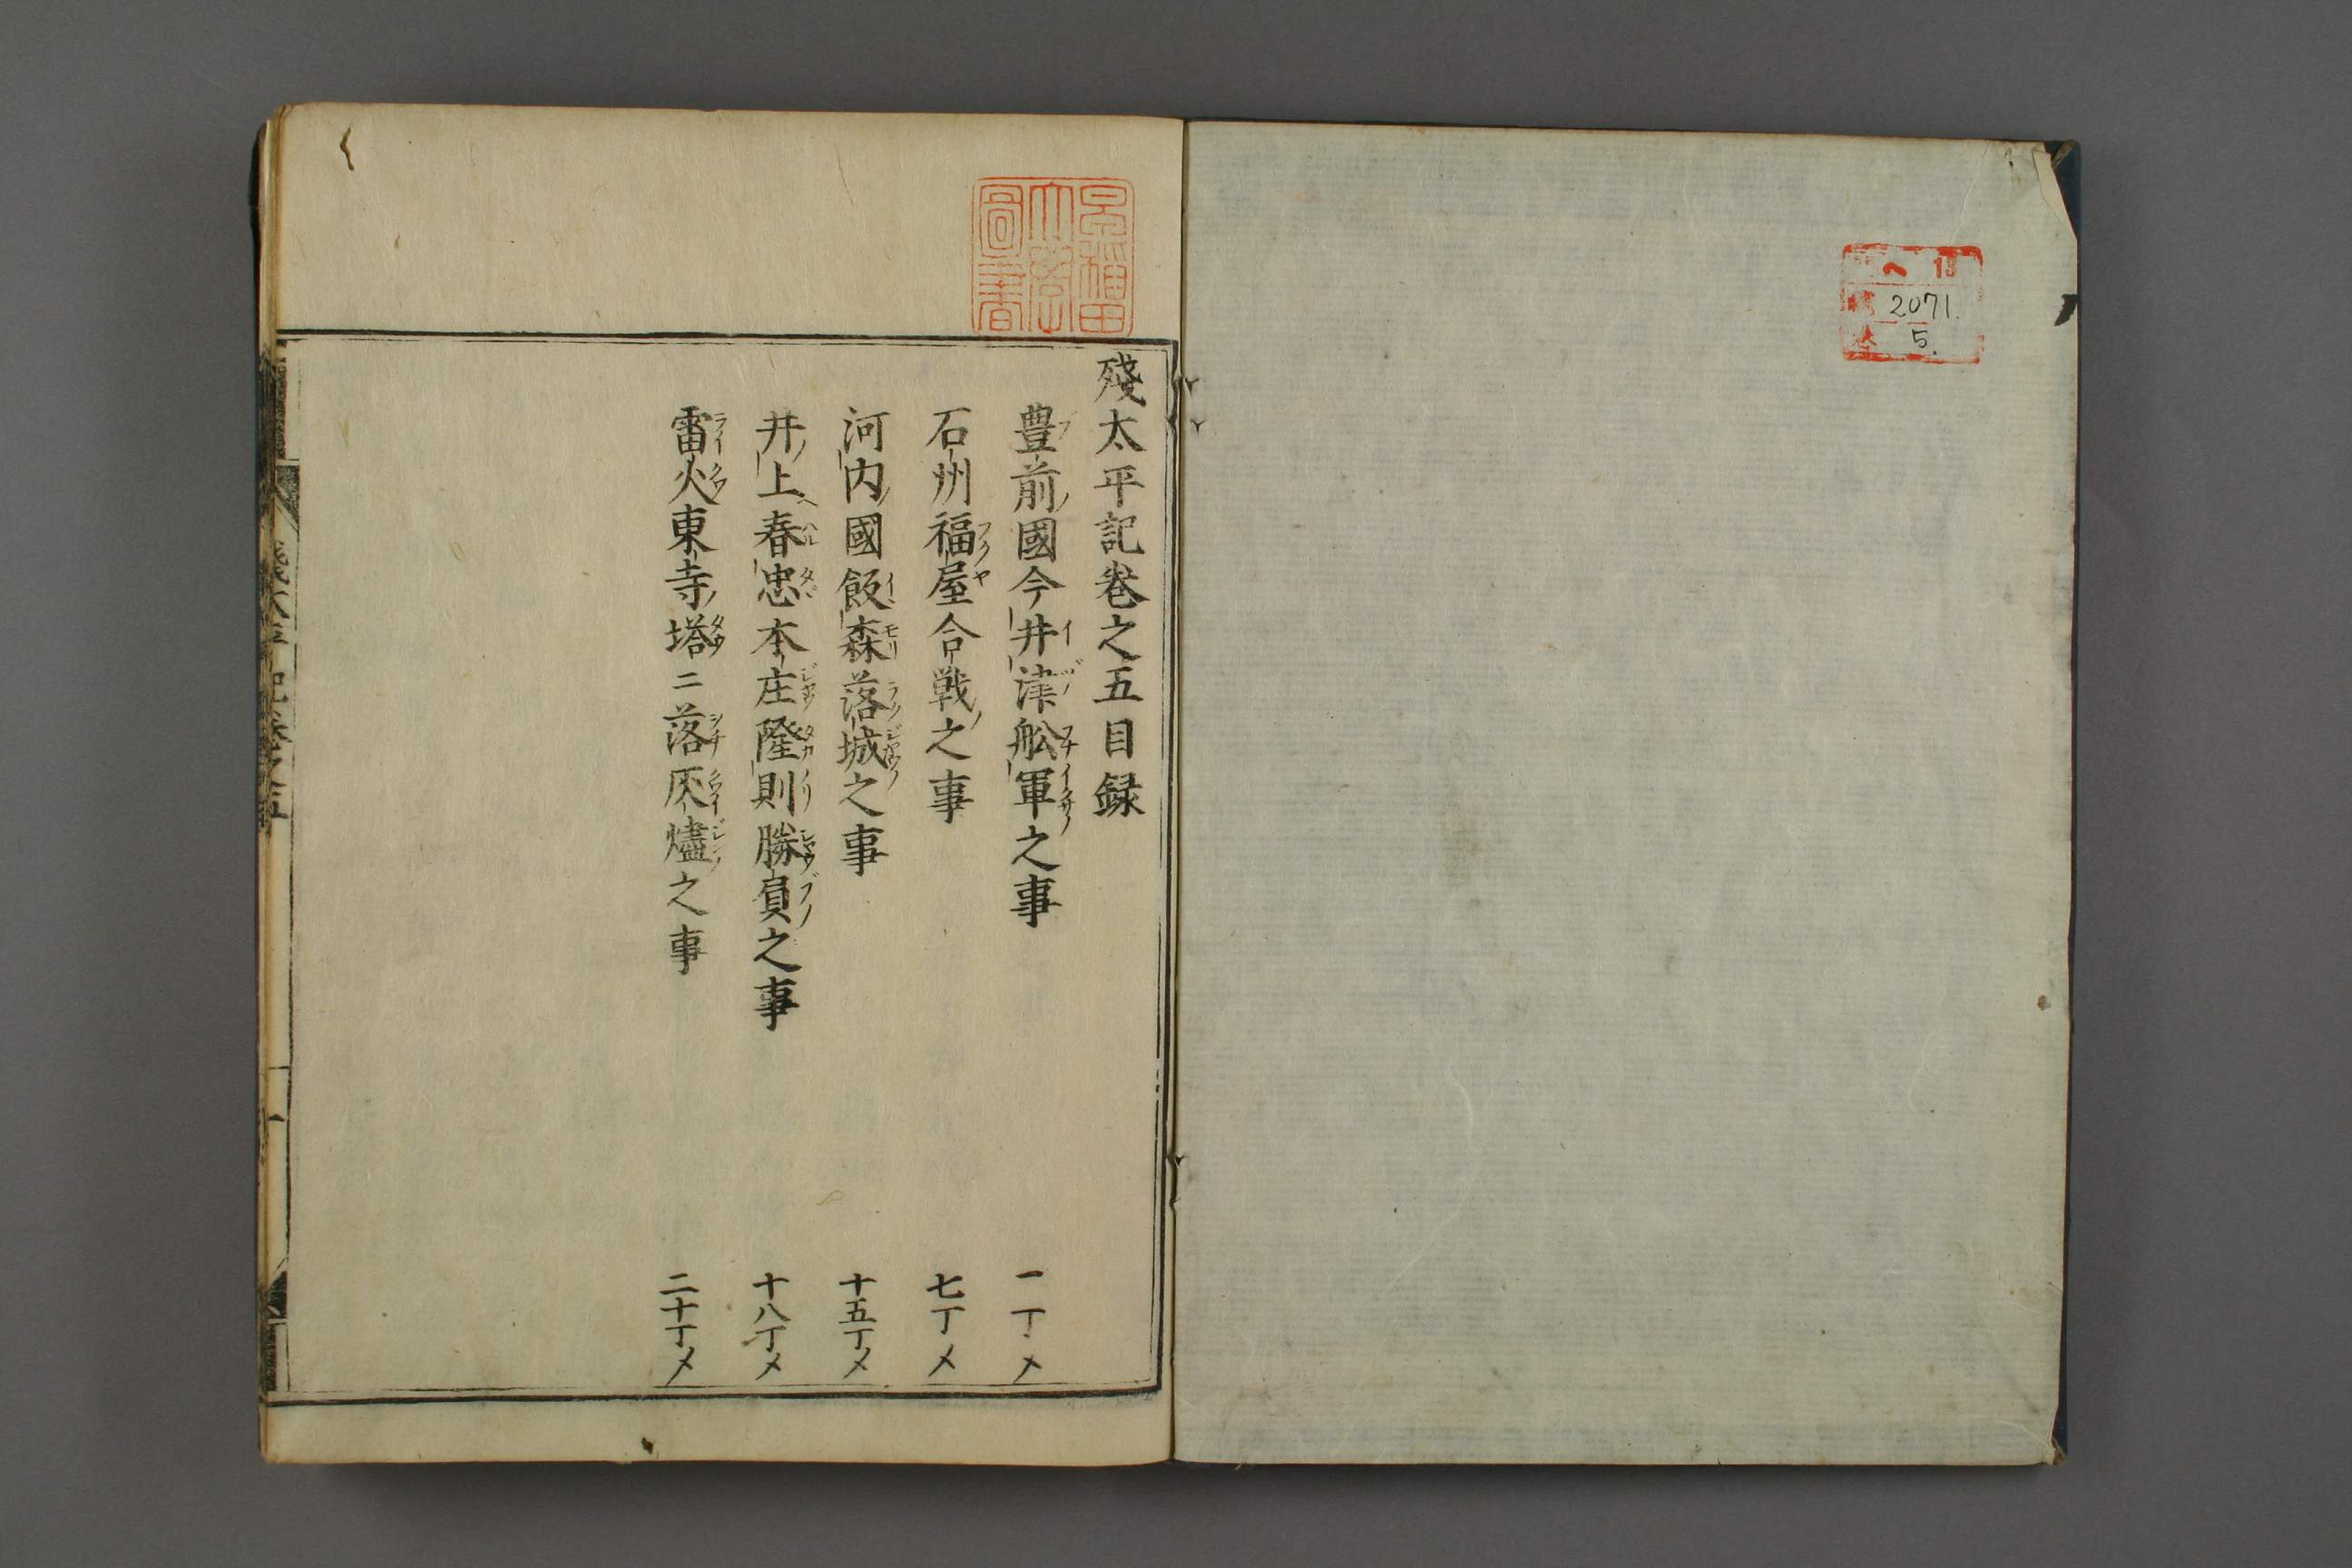 ヘ 13
2071.
5.
早稲田
大学
圖書
殘太平記巻之五目録
豊前國今井津舩軍之事 一丁メ
石州福屋合戦之事 七丁メ
河内國飯森落城之事 十五丁メ
井上春忠本庄隆則勝負之事 十八丁メ
雷火東寺塔ニ落灰燼之事 二十丁メ
殘太平記巻之五
一